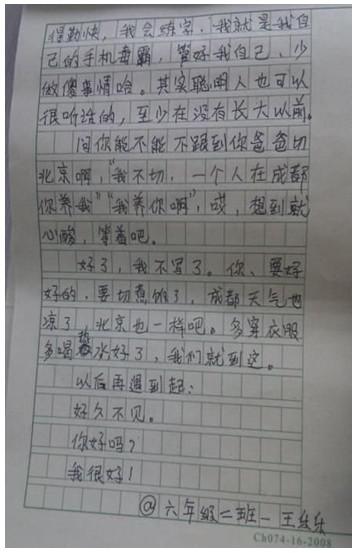 得勤快，我会练字，我就是我自
己的手机毒霸，管好我自己、少
做傻事情哈。其实聪明人也可以
很听话的，至少在没有长大以前。
问你能不能不跟到你爸爸切
北京啊，“我不切，一个人在成都
你养我”“我养你啊”，哎，想到就
心酸，等着吧。
好了，我不写了。你、要好
好的，要切煮饭了，成都天气也
凉了，北京也一样吧。多穿衣服
多喝热水好了，我们就到这。
以后再遇到起：
好久不见。
你好吗？
我很好！
@六年级二班一王丝乐
Ch074-16-2008